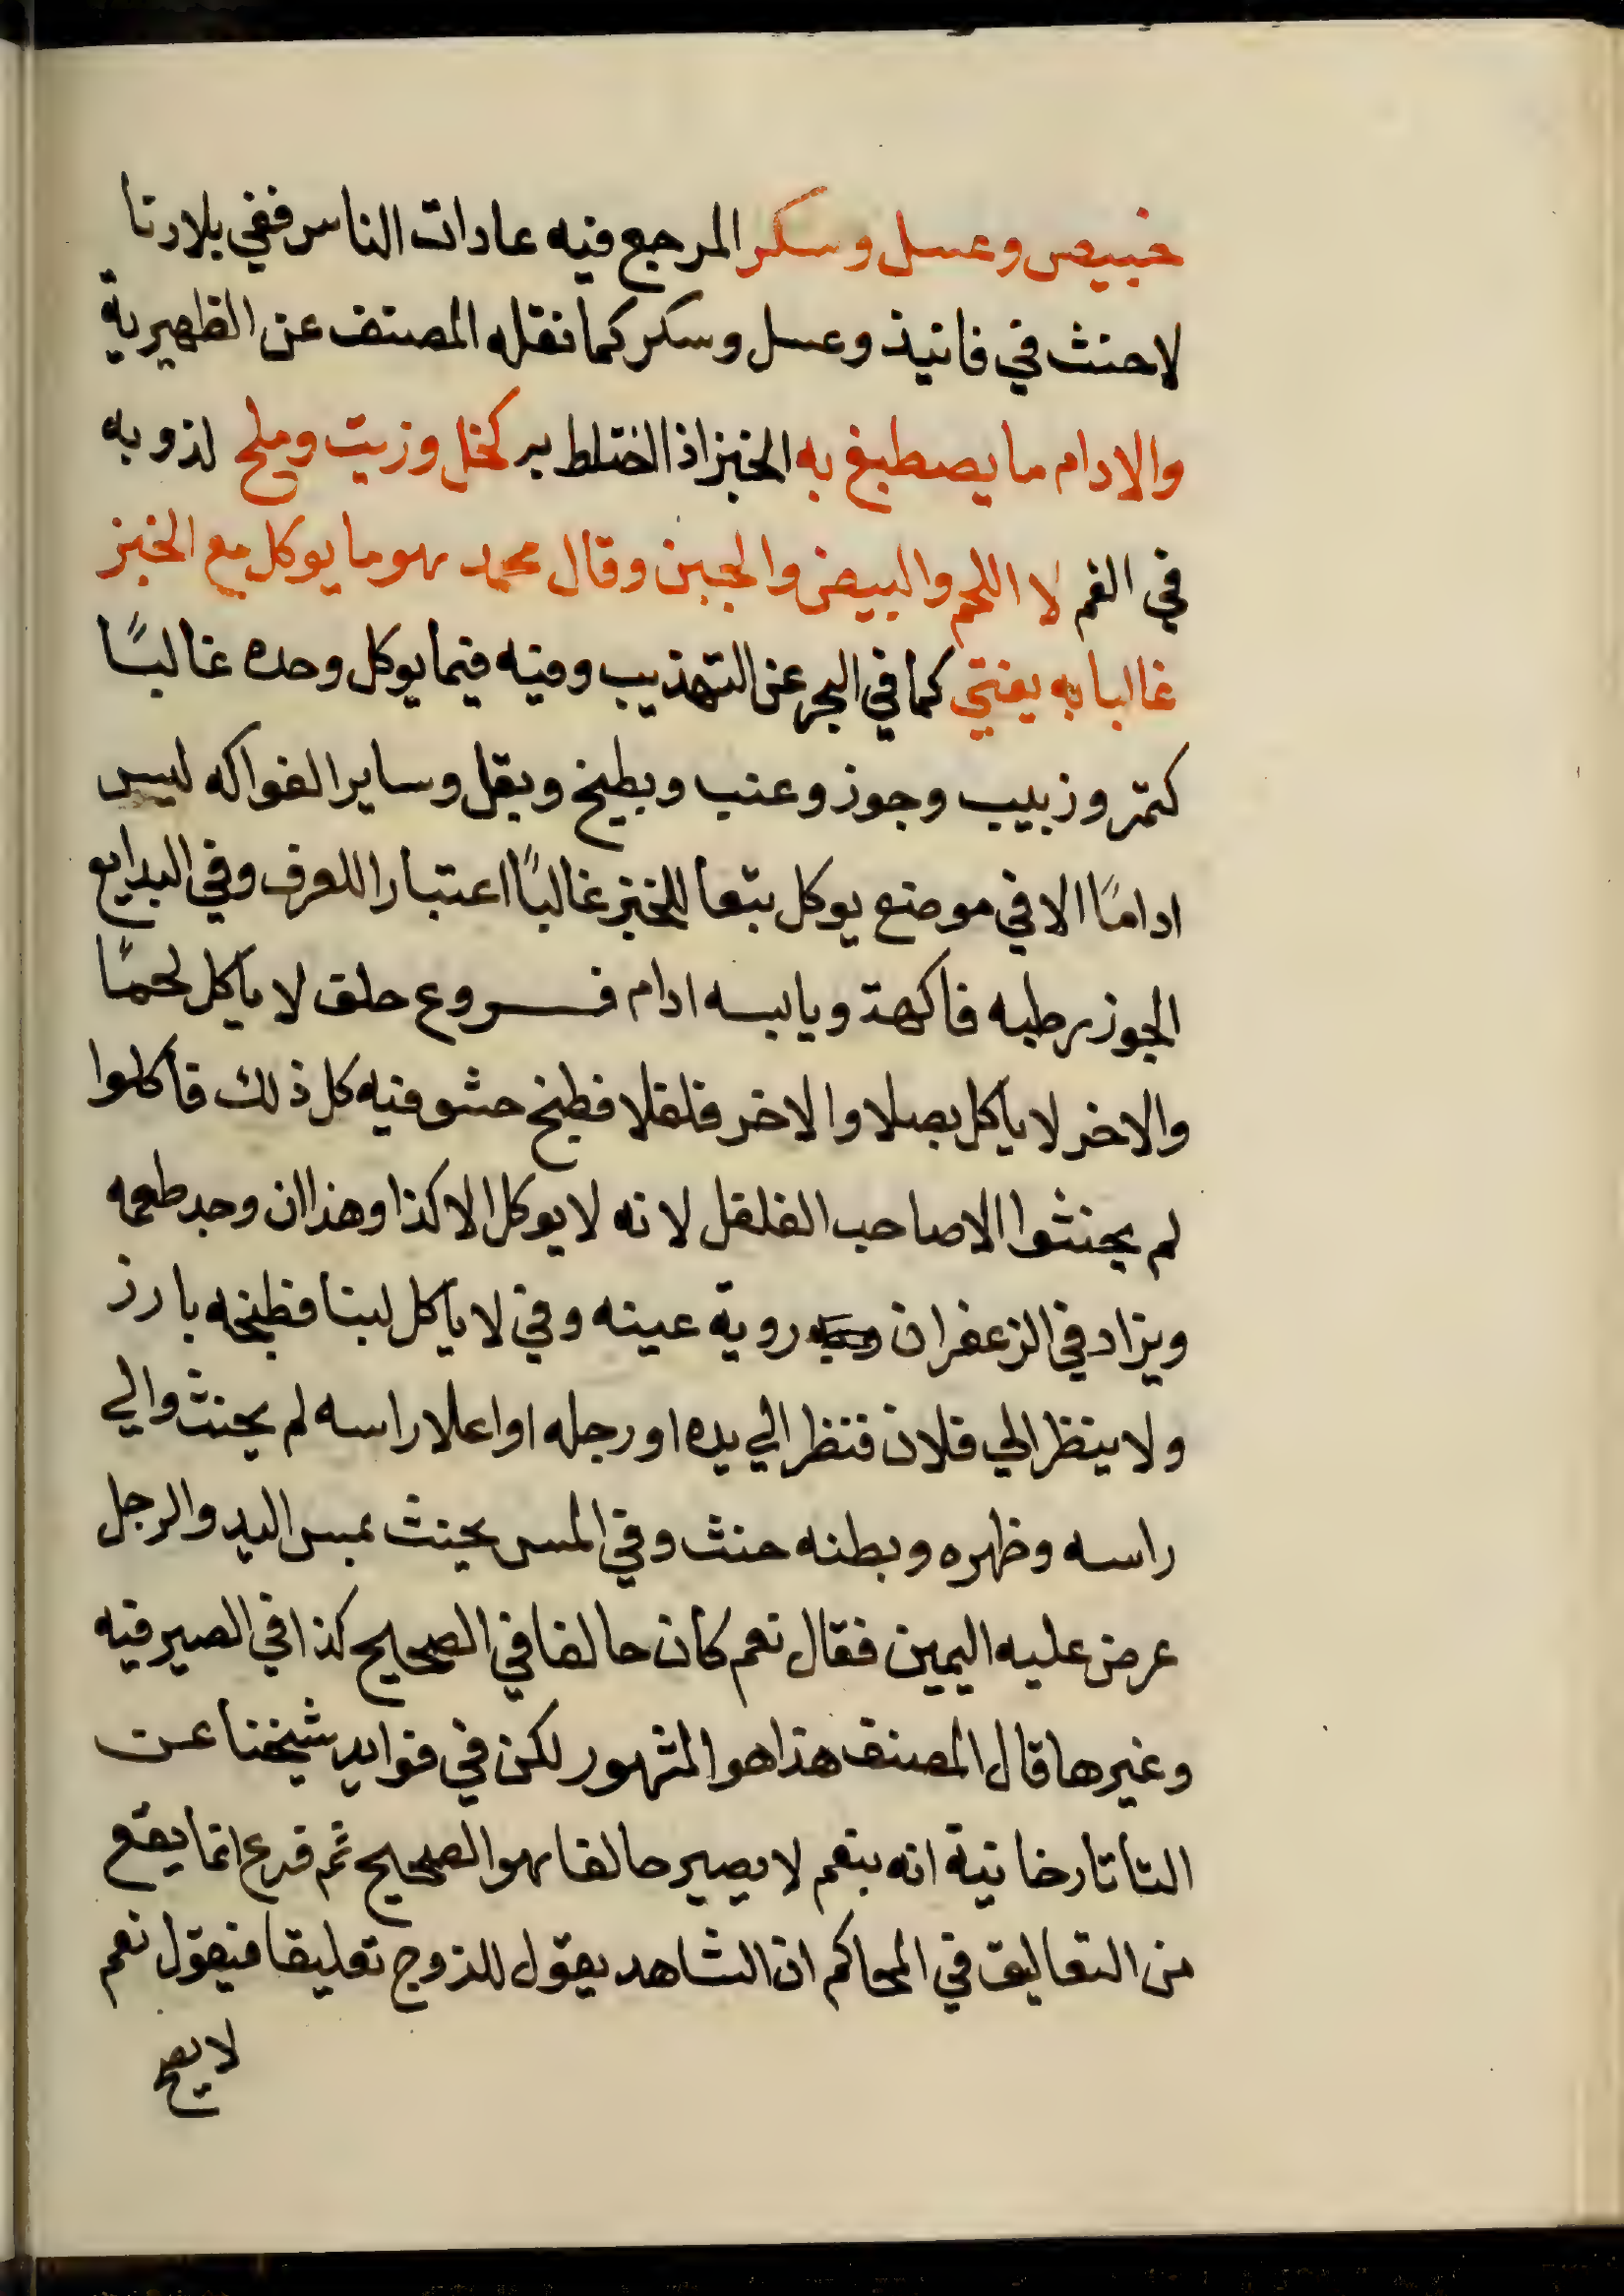 خبيص وعسل وسكر المرجع فيه عادات الناس ففي بلادنا
لاحنث في فانيذ وعسل وسكر كما نقله المصنف عن الظهيرية
والادام ما يصطبغ به الخبز اذا اختلط به كخل وزيت وملح لذوبه
في الفم لا اللحم والبيض والجبن وقال محمد هو ما يوكل مع الخبز
غالبا به يفتي كما في البحر عن التهذيب وفيه فيما يوكل وحده غالبًا
كتمر وزبيب وجوز وعنب وبطيخ وبقل وساير الفواكه ليس
ادامًا الا في موضع يوكل تبعا للخبز غالبًا اعتبارا للعرف وفي البدايع
الجوز رطبه فاكهة ويابسه ادام فروع حلف لا ياكل لحمًا
والاخر لا ياكل بصلا والاخر فلفلا فطبخ حشو فيه كل ذلك فاكلوا
لم يحنثوا الا صاحب الفلفل لانه لا يوكل الا كذا وهذا ان وجد طعمه
ويزاد في الزعفران روية عينه وفي لا ياكل لبنا فطبخه بارز
ولا ينظر الي فلان فنظر الي يده او رجله او اعلا راسه لم يحنث والي
راسه وظهره وبطنه حنث وفي المس يحنث بمس اليد والرجل
عرض عليه اليمين فقال نعم كان حالفا في الصحيح كذا في الصيرفيه
وغيرها قال المصنف هذا هو المشهور لكن في فوايد شيخنا عن
التاتارخانية انه بنعم لا يصير حالفا هو الصحيح ثم فرع انما يقع
من التعاليق في المحاكم ان الشاهد يقول للزوج تعليقا فيقول نعم
لا يصح